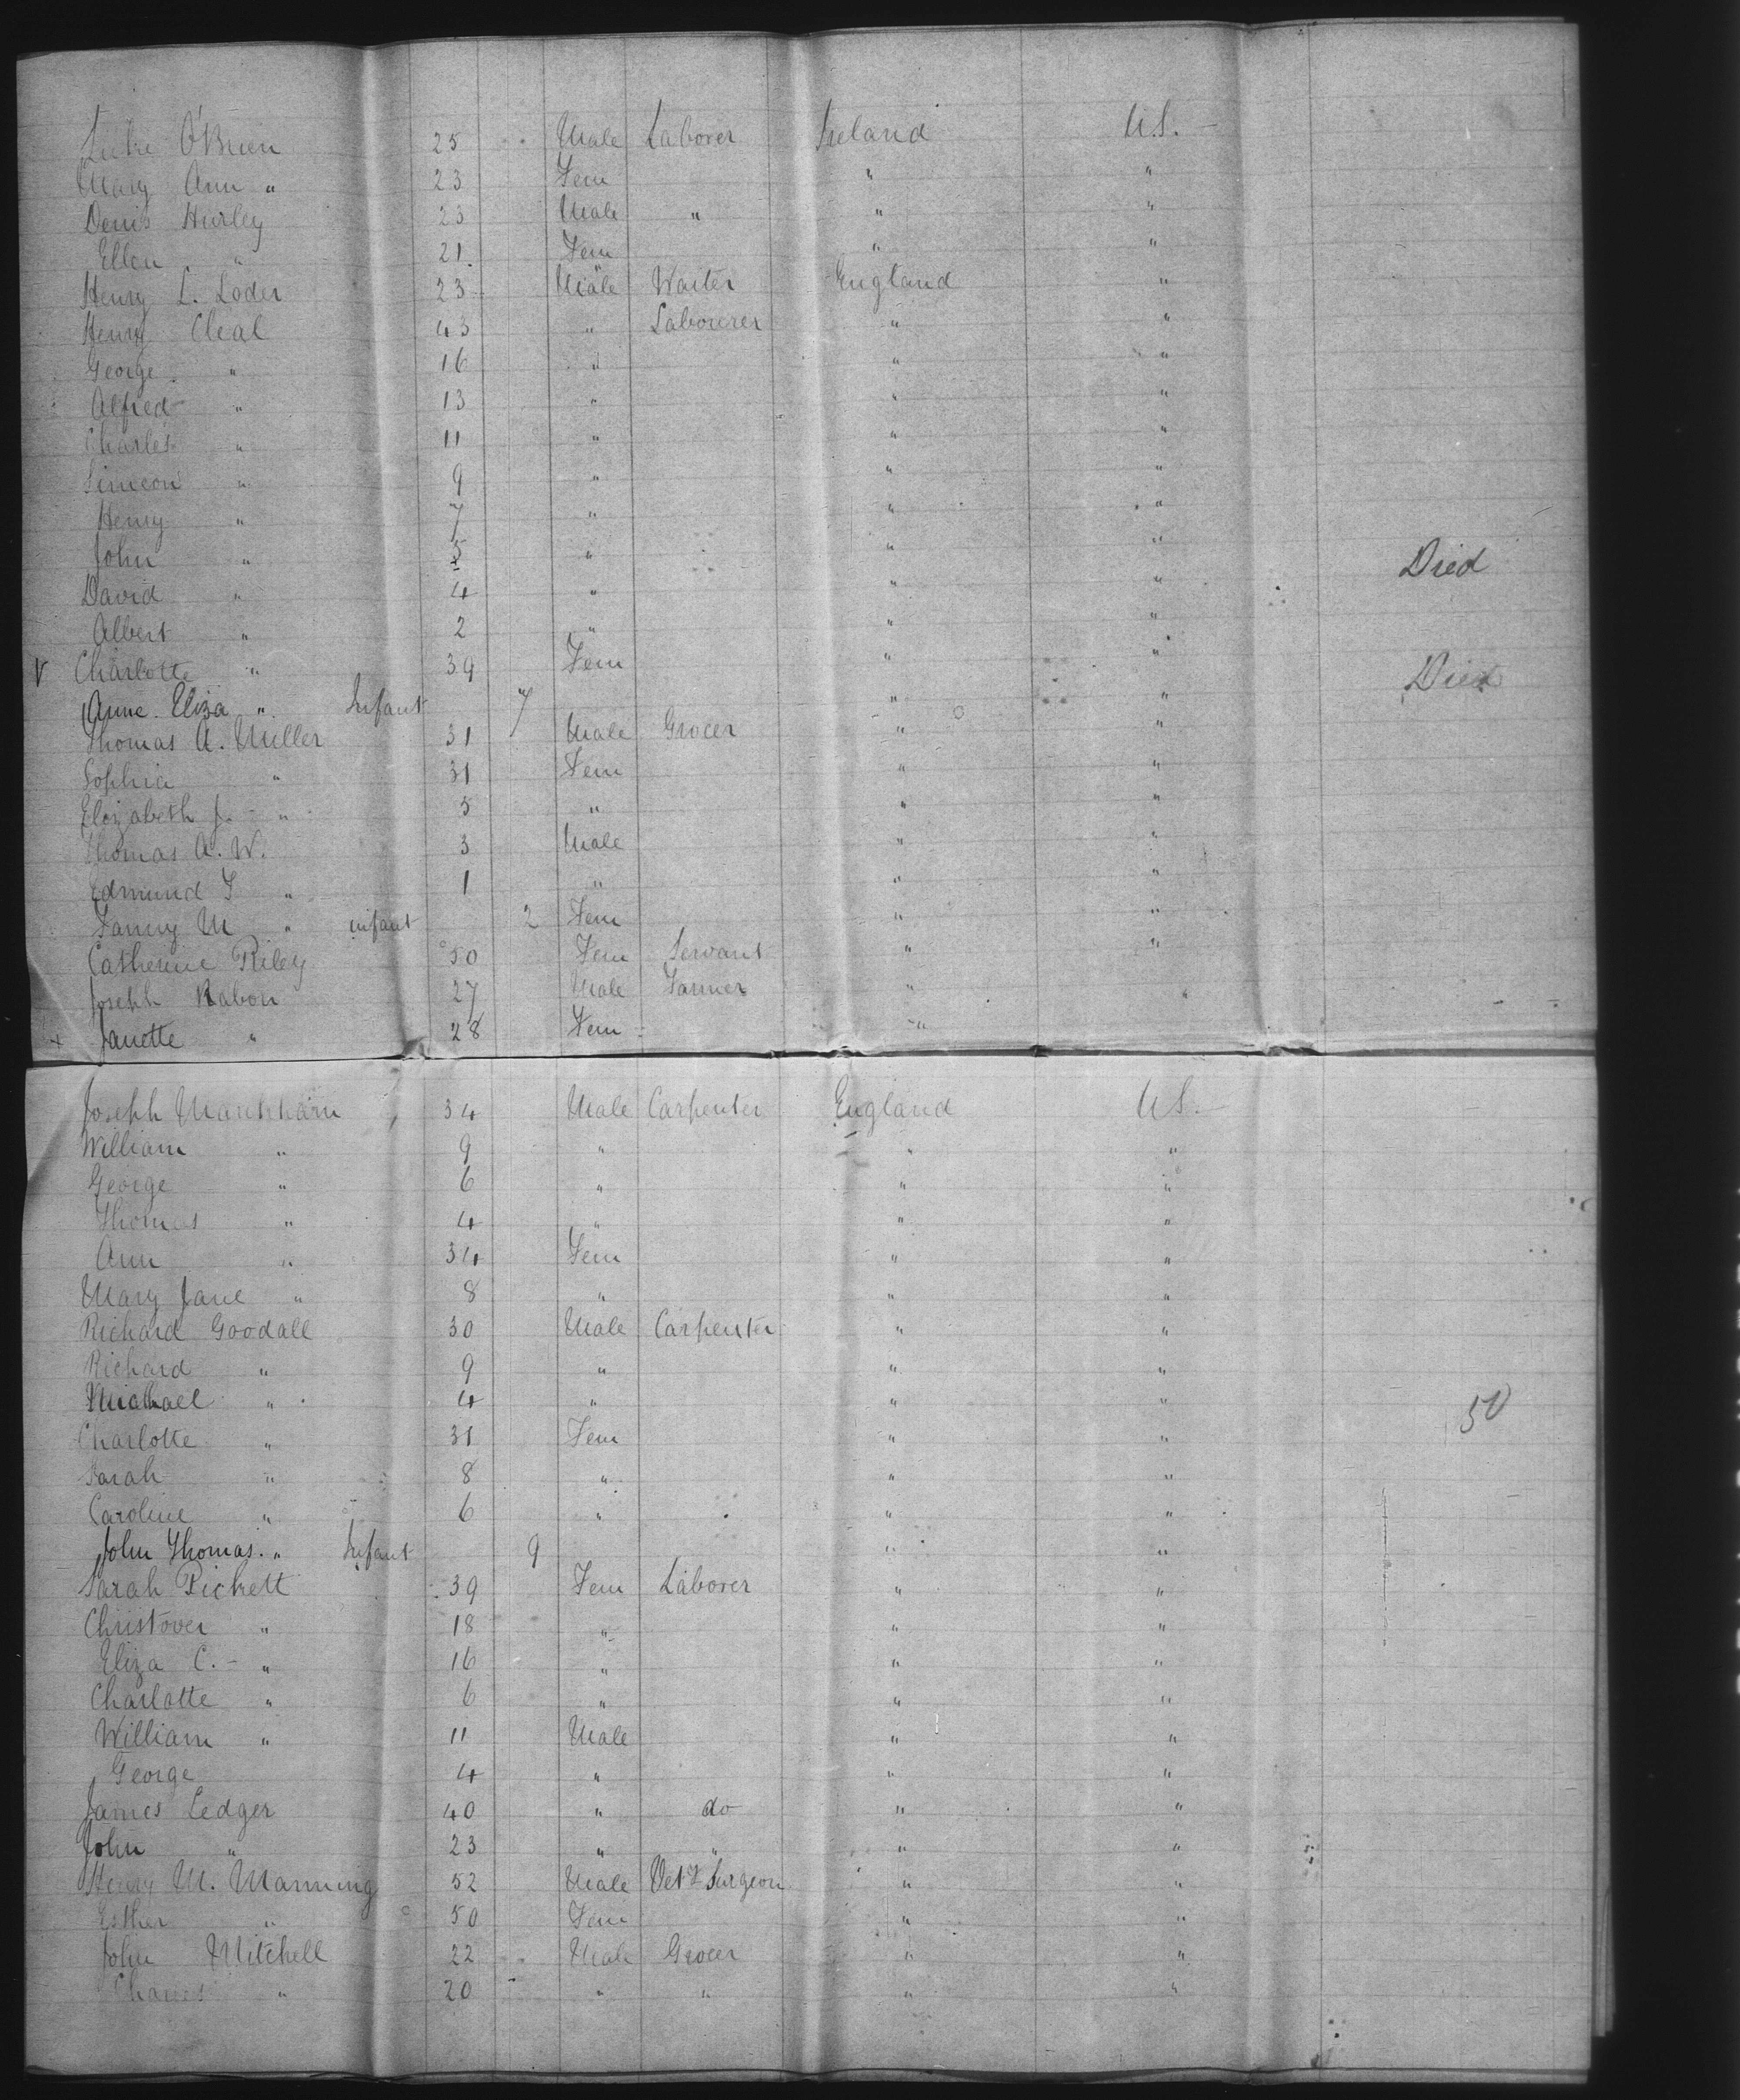 Luke O'Brien 25 Male Laborer Ireland U.S.
Mary Ann " 23 Fem " "
Denis Hurley 23 Male " " "
Ellen " 21 Fem " "
Henry L. Loder 23 Male Waiter England "
Henry Cleal 43 " Labourer " "
George " 16 " " "
Alfred " 13 " " "
Charles " 11 " " "
Simeon " 9 " " "
Henry " 7 " " "
John " 5 " " " Died
David " 4 " " "
Albert " 2 " " "
V Charlotte " 39 Fem " "
Anne Eliza " Infant 7 " " Died
Thomas A. Miller 31 Male Grocer " "
Sophia " 31 Fem " "
Elizabeth J. " 5 " " "
Thomas A. W. 3 Male " "
Edmund T " 1 " " "
Fanny M " infant 2 Fem " "
Catherine Riley 50 Fem Servant " "
Joseph Rabon 27 Male Farmer " "
+ Janette " 28 Fem "
Joseph Markham 34 Male Carpenter England U.S.
William " 9 " " "
George " 6 " " "
Thomas " 4 " " "
Ann " 34 Fem " "
Mary Jane " 8 " " "
Richard Goodall 30 Male Carpenter " "
Richard " 9 " " "
Michael " 4 " " " 50
Charlotte " 31 Fem " "
Sarah " 8 " " "
Caroline " 6 " " "
John Thomas " Infant 9 " "
Sarah Pickett 39 Fem Laborer " "
Christover " 18 " " "
Eliza C. - " 16 " " "
Charlotte " 6 " " "
William " 11 Male " "
George 4 " " "
James Ledger 40 " do " "
John " 23 " " " "
Henry M. Manning 52 Male Vety Surgeon " "
Esther " 50 Fem " "
John Mitchell 22 Male Grocer " "
Charles " 20 " " " "